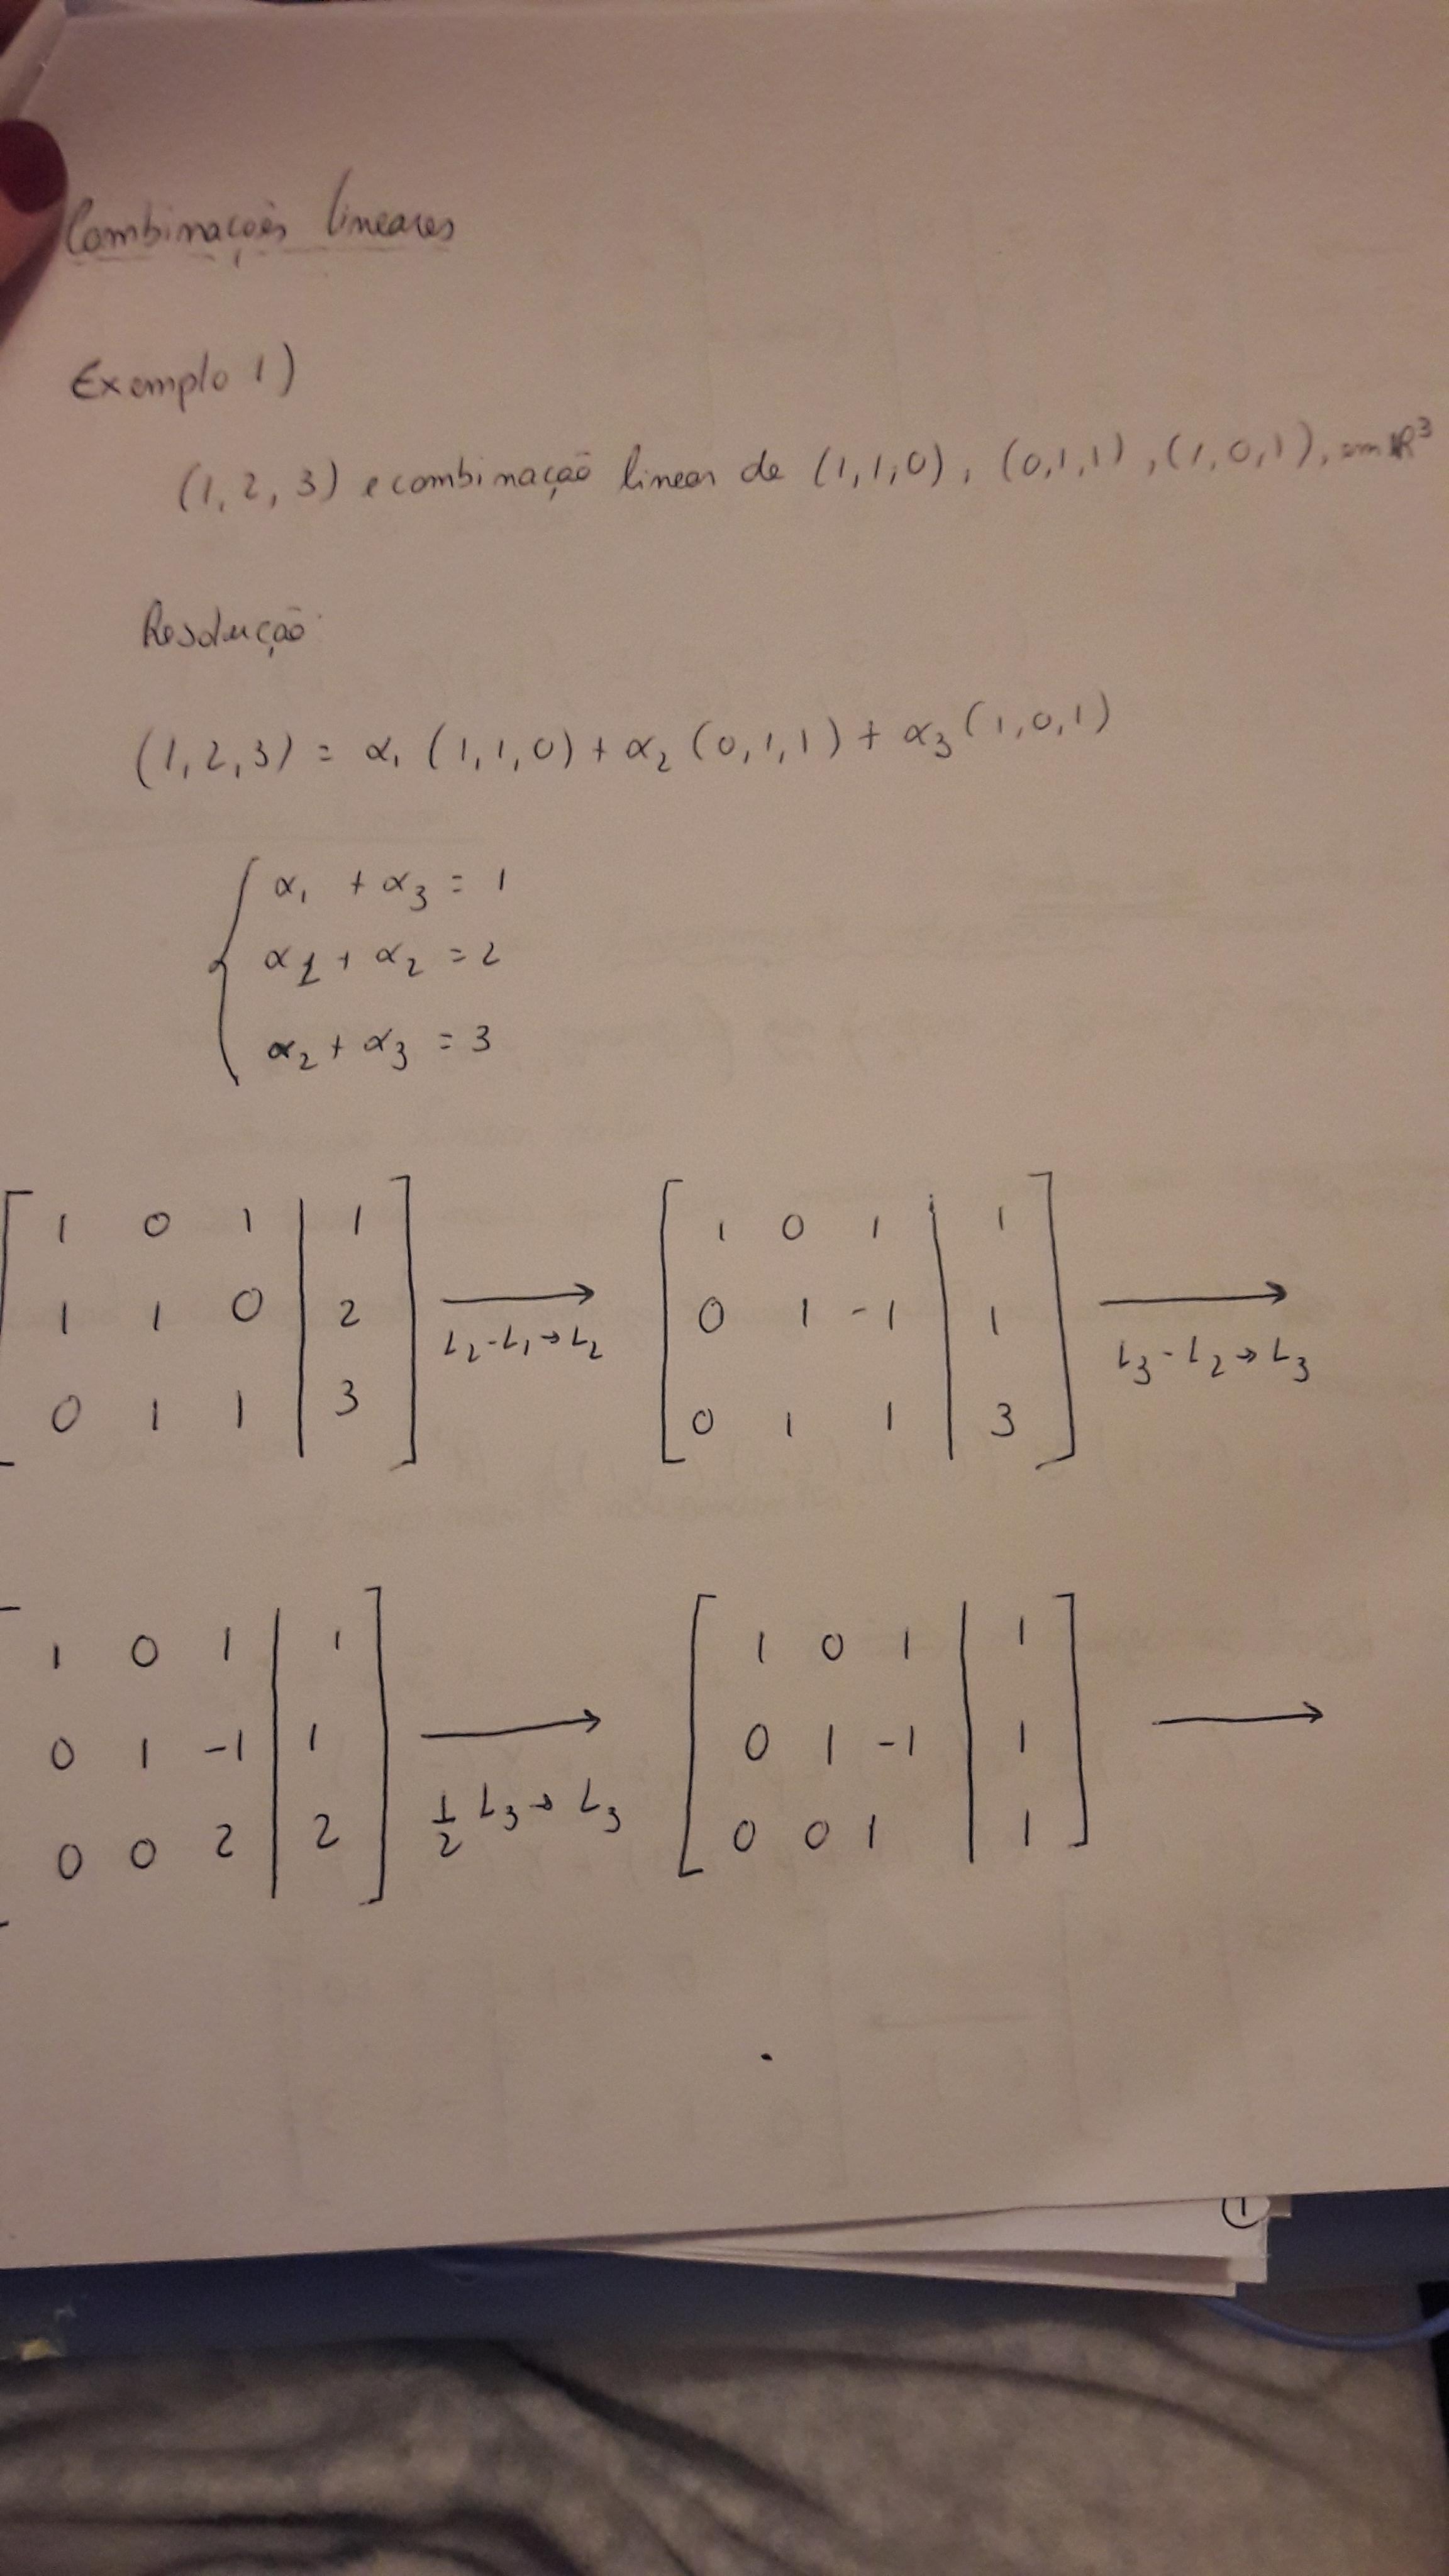 Combinações lineares
Exemplo 1)
(1, 2, 3) e combinação linear de (1,1,0), (0,1,1), (1,0,1), em ℝ³
Resolução
(1,2,3) = α₁ (1,1,0) + α₂ (0,1,1) + α₃ (1,0,1)
α₁ + α₃ = 1
α1 + α₂ = 2
α₂ + α₃ = 3
1 0 1 | 1 1 0 1 | 1
1 1 0 | 2 L₂-L₁→L₂ 0 1 -1 | 1 L₃-L₂→L₃
0 1 1 | 3 0 1 1 | 3
1 0 1 | 1 1 0 1 | 1
0 1 -1 | 1 1/2 L₃→L₃ 0 1 -1 | 1
0 0 2 | 2 0 0 1 | 1
1